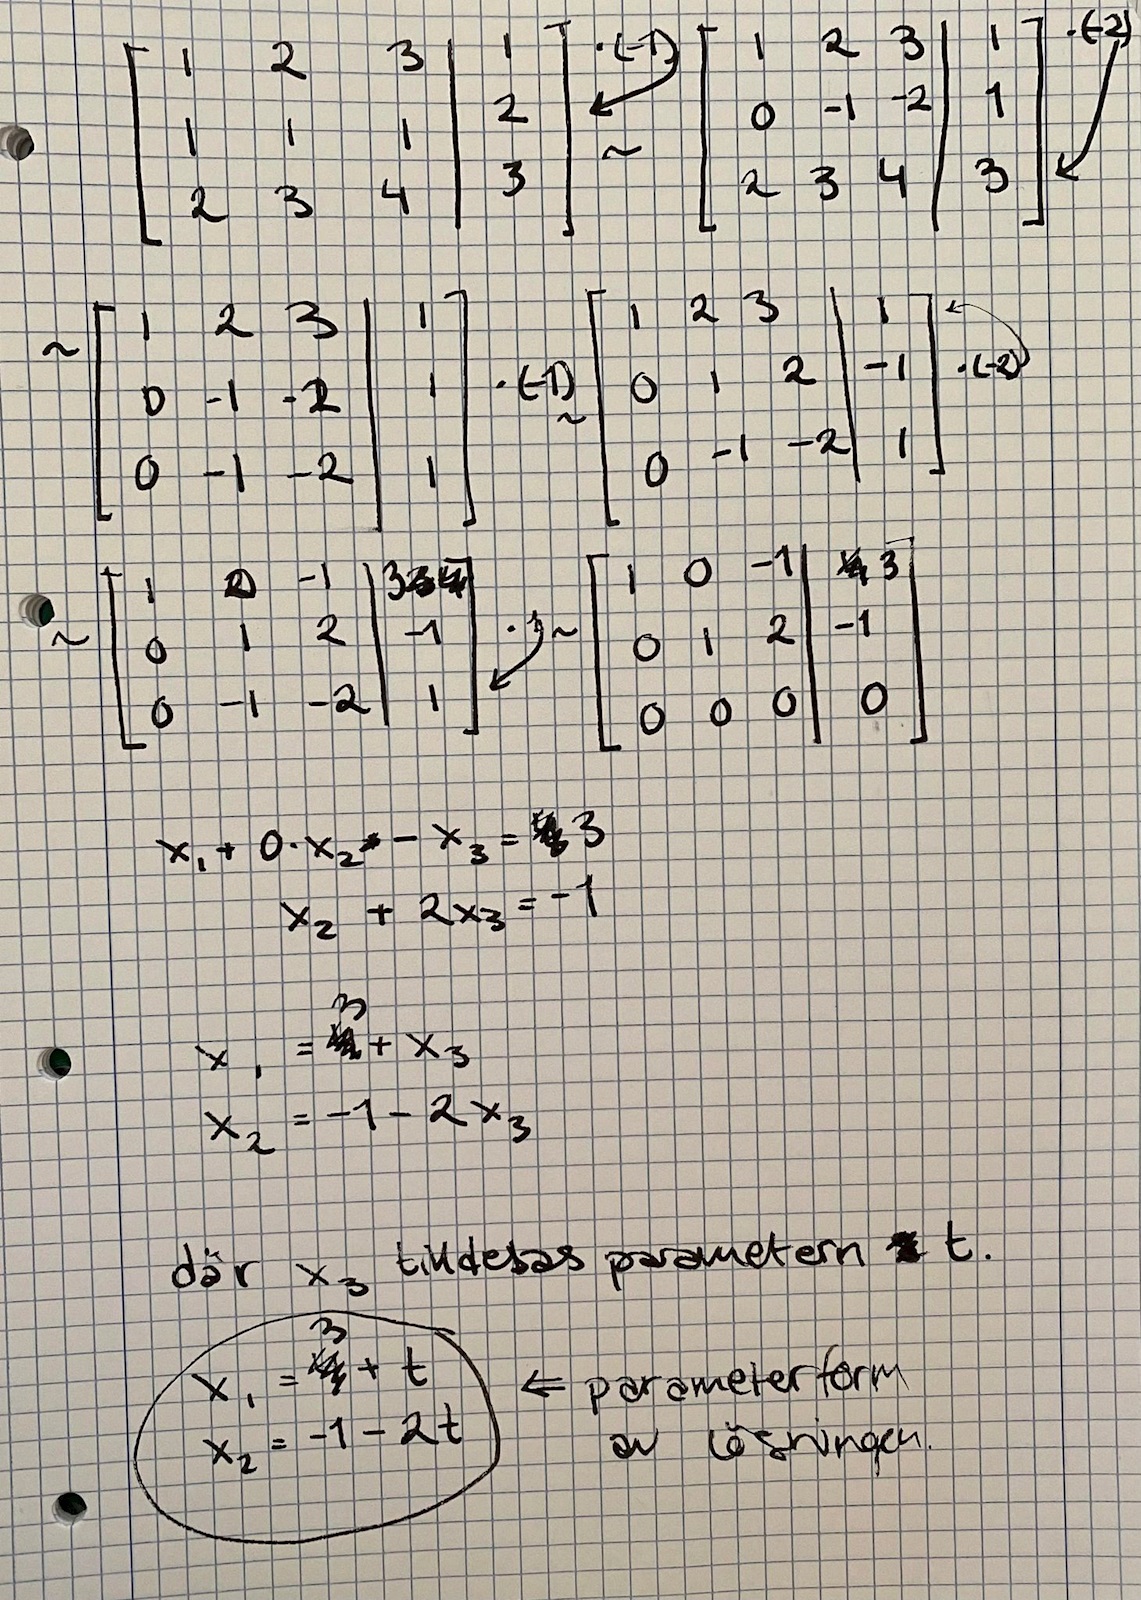 [ 1 2 3 | 1 ] ·(-1) [ 1 2 3 | 1 ] ·(-2)
[ 1 1 1 | 2 ] ~ [ 0 -1 -2 | 1 ]
[ 2 3 4 | 3 ] [ 2 3 4 | 3 ]
~ [ 1 2 3 | 1 ] [ 1 2 3 | 1 ]
[ 0 -1 -2 | 1 ] ·(-1) ~ [ 0 1 2 | -1 ] ·(-2)
[ 0 -1 -2 | 1 ] [ 0 -1 -2 | 1 ]
~ [ 1 0 -1 | 3 ] [ 1 0 -1 | 3 ]
[ 0 1 2 | -1 ] ·1 ~ [ 0 1 2 | -1 ]
[ 0 -1 -2 | 1 ] [ 0 0 0 | 0 ]
x₁ + 0·x₂ - x₃ = 3
x₂ + 2x₃ = -1
x₁ = 3 + x₃
x₂ = -1 - 2x₃
där x₃ tilldelas parametern t.
x₁ = 3 + t ← parameterform
x₂ = -1 - 2t av lösningen.